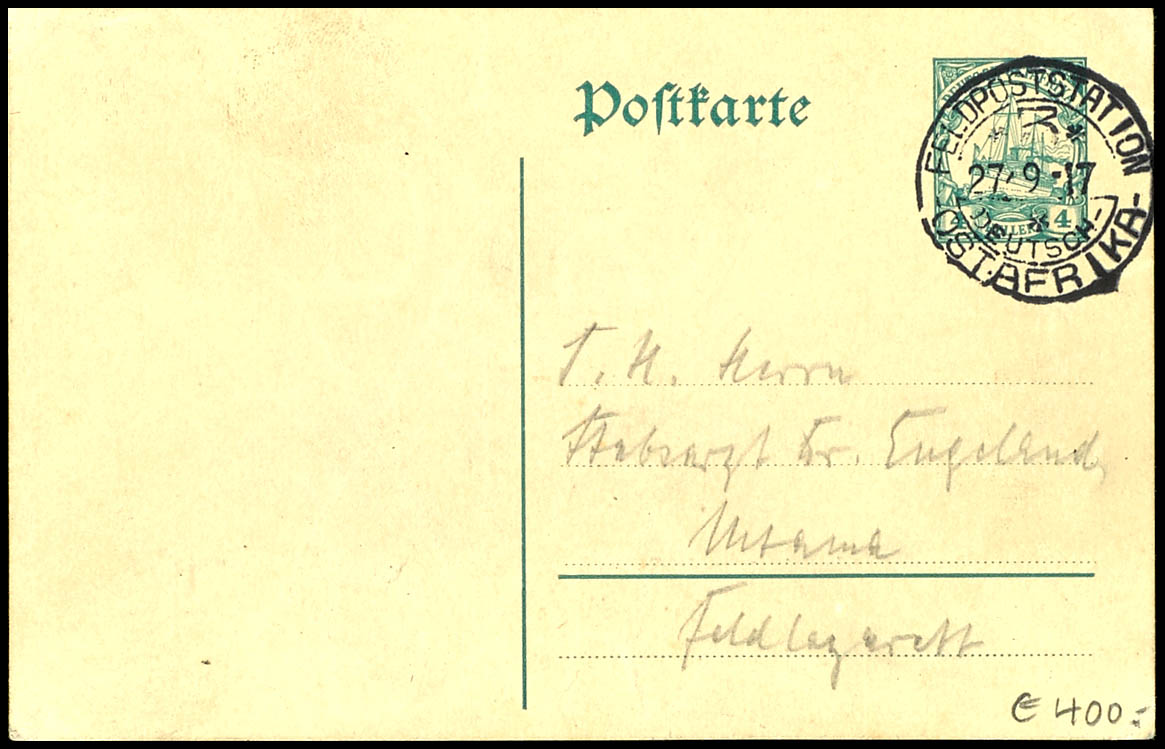 Postkarte
FELDPOSTSTATION
27.9.17
DEUTSCH-
OSTAFRIKA-
4 HELLER 4
T. H. Herrn
Stabsarzt Dr. Engeland,
Mtama
Feldlazarett
€ 400.-